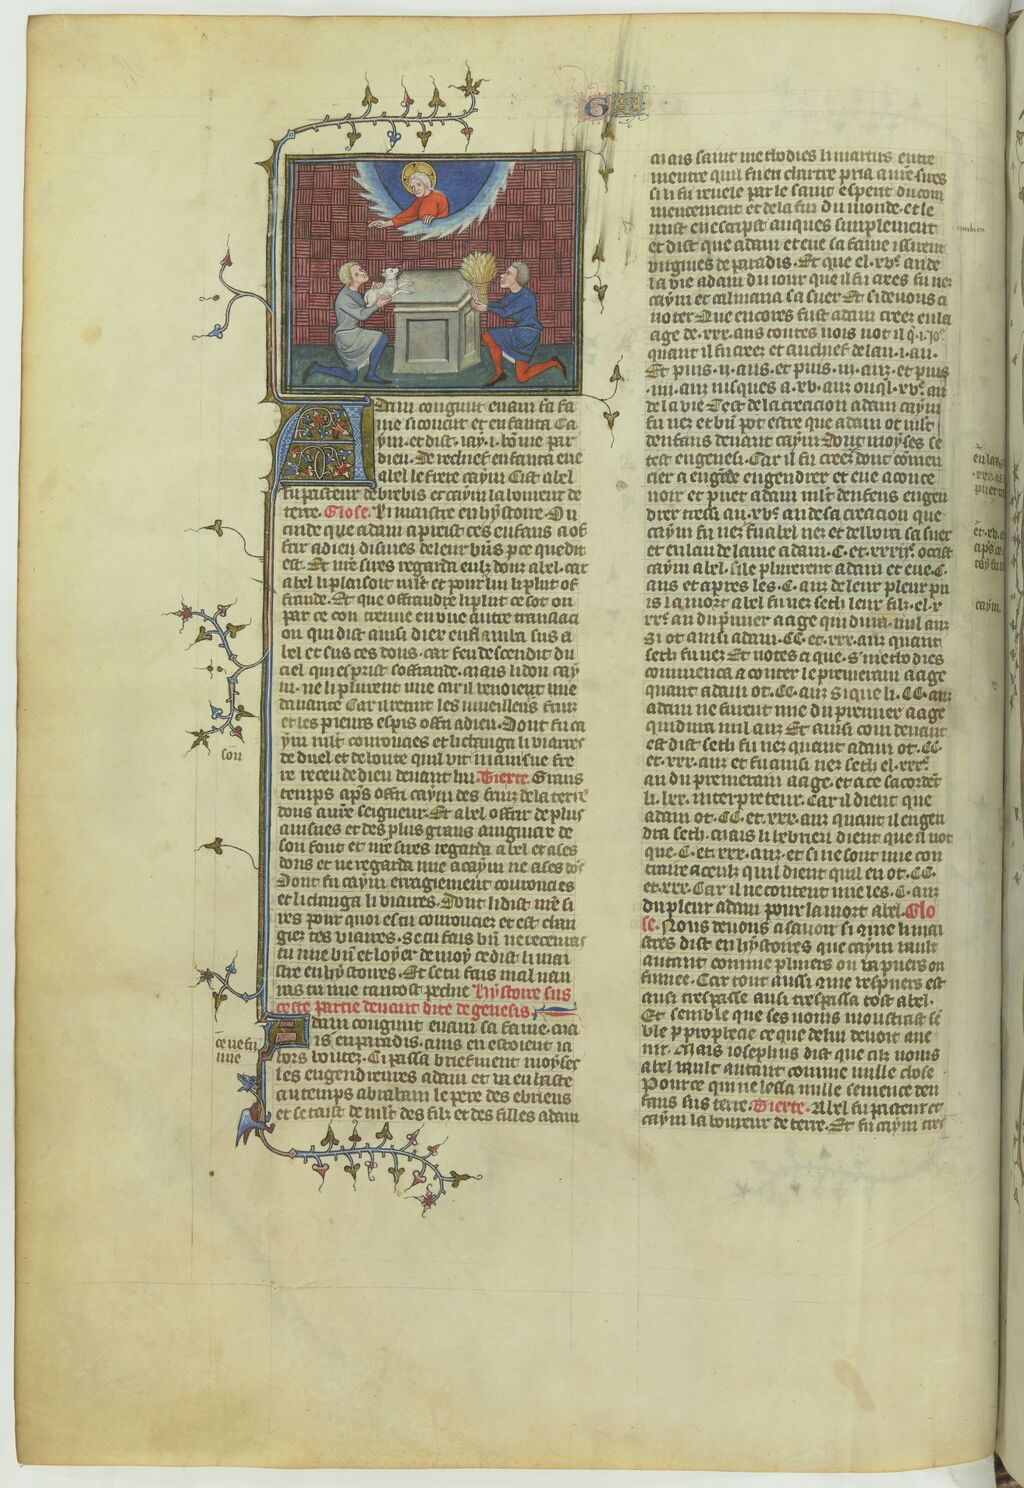 G
Adam congnut evam sa fa
me si concut et enfanta Ca
ym. et dist. iay. i. home par
dieu. De rechief enfanta eue
abel le frere caym Cist abel
fu pasteur de brebis et caym laboureur de
terre. Glose. Li maistre en hystoire. Du
cuide que adam apreist ces enfans a of
frir a dieu
est. Et nre sires regarda
abel li plaisoit mlt et pour lui li plut of
frande. Et que offrandre li plut ce sot on
par ce con treuue en vne autre translaci
on qui dist ainsi dier enflamba sus a
bel et sus ces dons. car feu descendit du
ciel qui esprist soffrande. mais li don cay
m. ne li plurent mie car il
et les pieurs espis offri a dieu. Dont fu ca
ym mlt courouciez et li changa li viaires
de duel et de honte quil vit
re receu de dieu deuant lui. Tierte. Grans
temps aps offri caym des fruiz de la terre
dons a nre seigneur. Et abel offrir de plus
ainsnes et des plus gras
son fouc et nre sires regarda abel et a ses
dons et ne regarda mie a caym ne a ses dos
Dont fu caym erragiement courouciez
et li changa li viaires. Dont li dist nre si
res pour quoi es tu courouciez et est chan
giez tes viaires. se tu fais bn ne receuras
tu mie bn et loyer de moy ce dist li mai
stre en hystoires. Et se tu fais mal ven
ras tu mie tantost pechie hystoire sus
ceste partie deuant dite de genesis.
Adam congnut euam sa fame. ma
is en paradis. ains en estoient ia
hors boutez. Ci passa briefment moyses
les engendreures adam et va en haste
au temps abraham le pere des ebrieus
et se taist de mlt des filz et des filles adam
son
ce ne fu
mie
Mais saint methodies li martirs entre
mentre quil fu en chartre pria a nre sires
si li fu reuele par le saint esperit du com
mencement et de la fin du monde. et le
mist en escript auques simplement
et dist que adam et eue sa fame issirent
virgines de paradis. Et que el. xve. an de
la vie adam du iour que il fu crees fu nez
caym et calmana sa suer Et si deuons ci
noter Que encores fust adam creez en la
age de. xxx. ans
quant il fu creez
Et puis. ii. ans. et puis. iii. anz. et puis
iiii. anz iusques a. xv. anz
de la vie Cest de la creacion adam caym
fu nez et bn pot estre que adam ot mlt
denfans deuant caym Dont moyses se
test en genesi. Car il fu creez dont comen
cier a engendrer et eue a conce
uoir et puet adam mlt denfens engen
drer tresci au. xve. an de sa creacion que
caym fu nez fu abel nez et delbora sa suer
et en lan de laue adam. C. et. xxx. ocist
caym abel. si le plurerent adam et eue. C.
ans et apres les. C. anz de leur pleur pu
is la mort abel fu nez seth leur filz. el. v
an du pmier aage qui dura. mil anz
Si ot ainsi adam. CC. et. xxx. anz quant
seth fu nez Et notes ci que. S. methodies
commenca a conter le premerain aage
quant adam ot. CC. anz Si que li. CC. anz
adam ne furent mie du premier aage
qui dura mil anz Et ainsi com deuant
est dist seth fu nez quant adam ot. CC.
et. xxx. anz et fu ainsi nez seth el. xxxe.
an du premerain aage. et a ce sacordet
li. lxx. interpreteur. Car il dient que
adam ot. CC. et. xxx. anz quant il engen
dra seth. mais li hebrieu dient que il not
que. C. et. xxx. anz. et si ne sont mie con
traire a ceulz quil dient quil en ot. CC.
et. xxx. Car il ne content mie les. C. anz
du pleur adam pour la mort abel. Glo
se. Nous deuons a sauoir si cme li mai
stres dist en hystoires que caym vault
autant comme pluiers ou
tinuee. Car tout aussi cme
ausi trespasse ausi trespassa tost abel.
Et semble que ses noms moustrast se
ble p prophecie ce que de lui deuoit aue
nir. Mais iosephus dist que cilz noms
abel vault autant comme nulle chose
Pour ce qui ne lessa nulle semence den
fans sus terre. Tierte. Abel fu pasteur et
caym laboureur de terre. Et fu caym tres
caym.